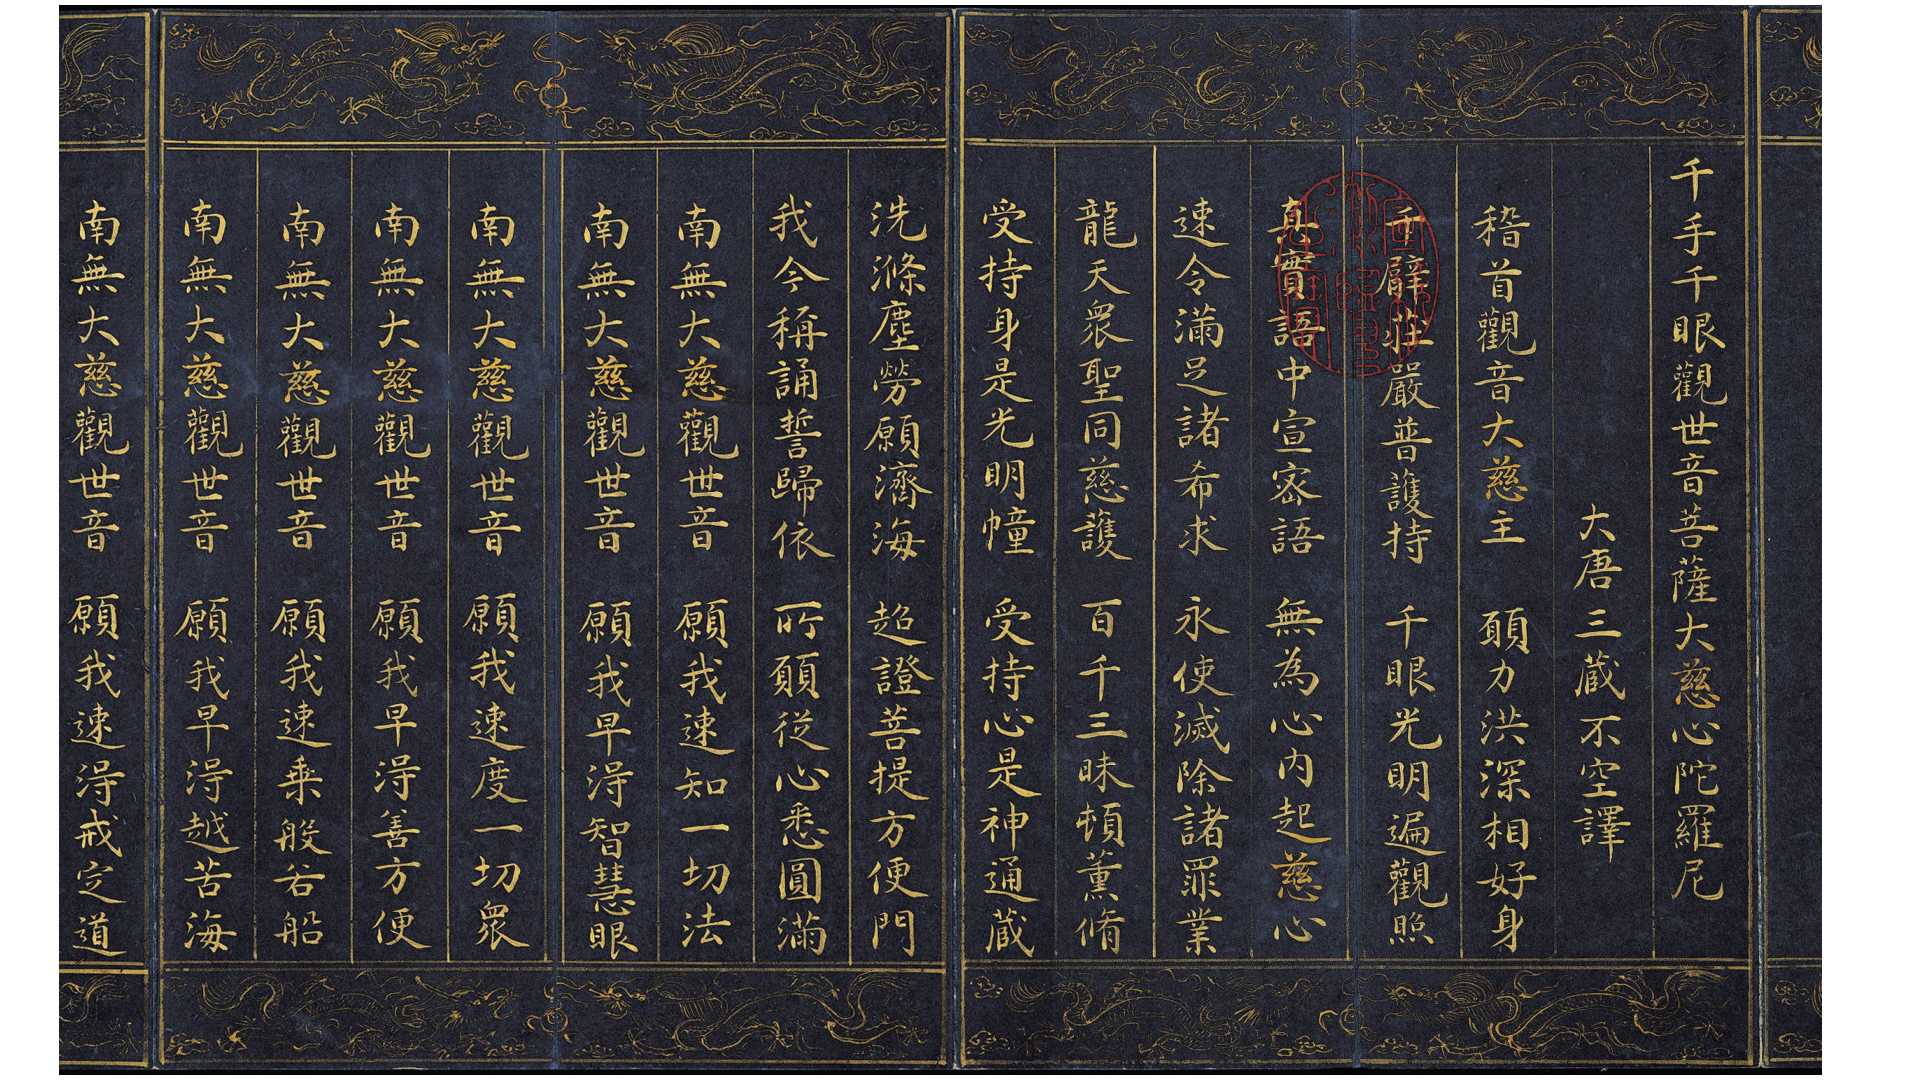 千手千眼觀世音菩薩大慈心陀羅尼
大唐三藏不空譯
稽首觀音大慈主 願力洪深相好身
千臂莊嚴普護持 千眼光明遍觀照
真實語中宣密語 無為心內起慈心
速令滿足諸希求 永使滅除諸罪業
龍天衆聖同慈護 百千三昧頓薰脩
受持身是光明幢 受持心是神通藏
洗滌塵勞願濟海 超證菩提方便門
我今稱誦誓歸依 所願從心悉圓滿
南無大慈觀世音 願我速知一切法
南無大慈觀世音 願我早得智慧眼
南無大慈觀世音 願我速度一切衆
南無大慈觀世音 願我早得善方便
南無大慈觀世音 願我速乘般若船
南無大慈觀世音 願我早得越苦海
南無大慈觀世音 願我速得戒定道